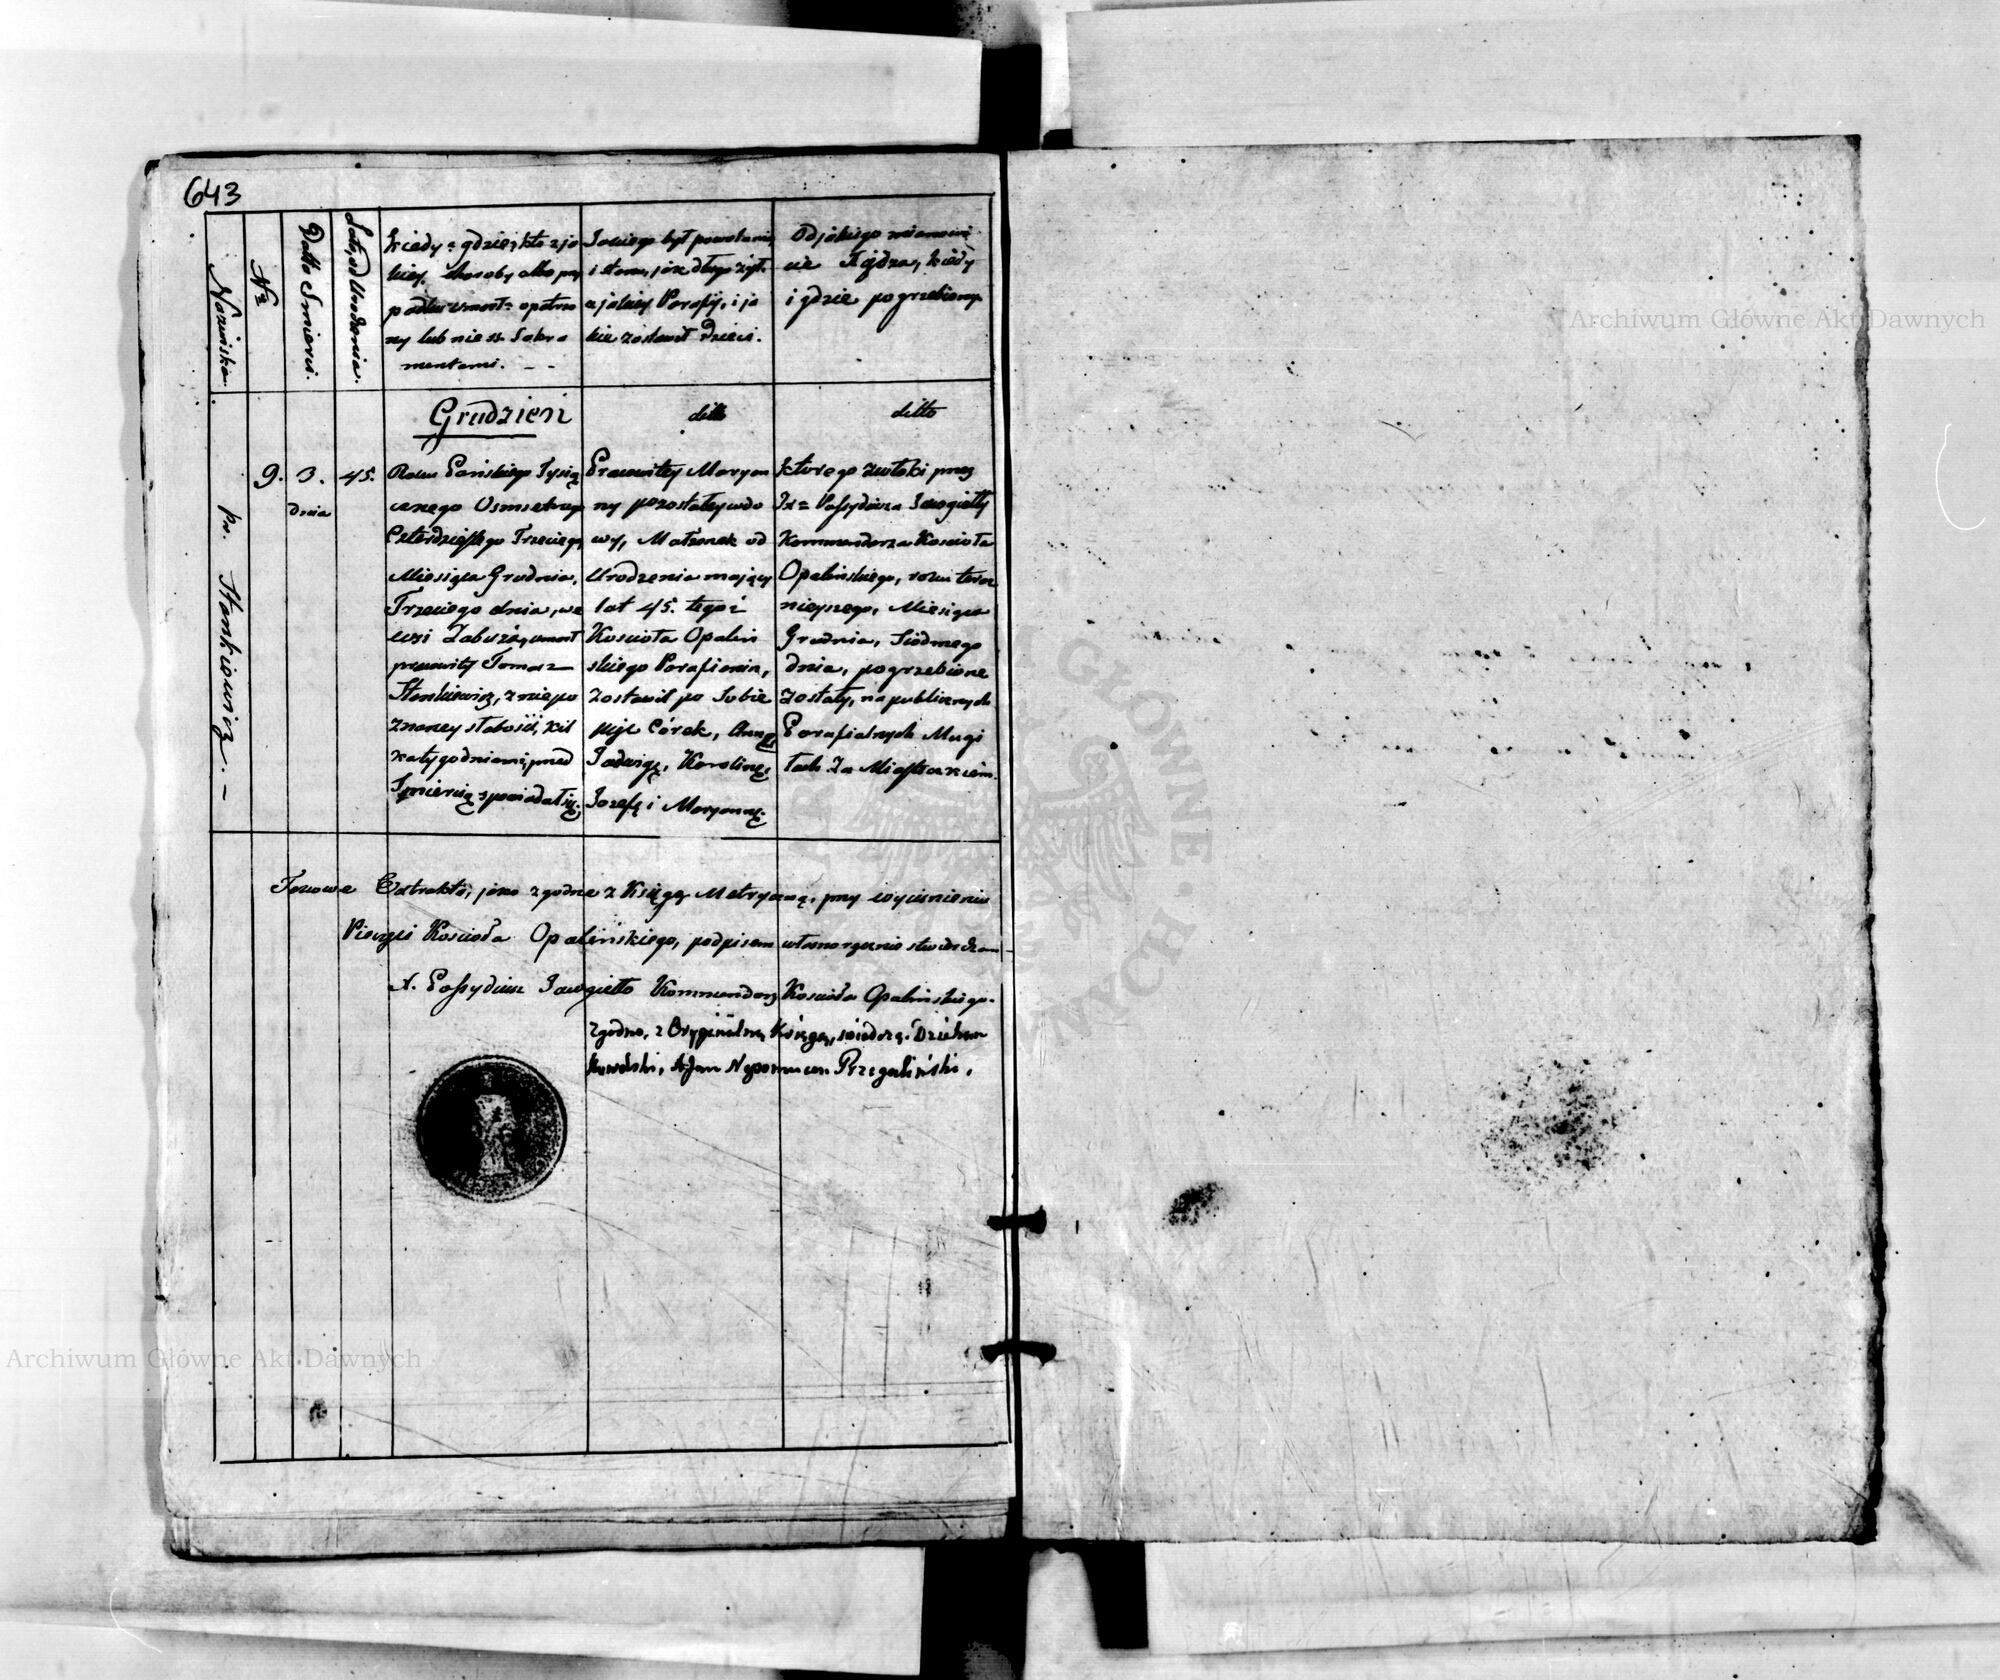 643
Nazwiska
Nro
Datto Smierci.
Lata od Urodzenia.
Kiedy, gdzie, kto z ja
kiey choroby albo przy
padku umarł, opatrzo
ny lub nie ss. Sakra
mentami. - -
Jakiego był powołania
i stanu, jak długo żył,
z jakiey Parafij, i ja
kie zostawił Dzieci.
Od jakiego mianowi
cie Xiędza, kiedy
i gdzie pogrzebiony.
Grudzień
ditto
ditto
pr. Stankiewicz. -
9.
3.
dnia
45.
Roku Pańskiego Tysią
cznego Osmsetnego
Czterdziestego Trzeciego,
Miesiąca Grudnia,
Trzeciego dnia, we
wsi Zabuże, umarł
pracowity Tomasz
Stankiewicz, z niepo
znaney słabości, kil
ka tygodniami, przed
Śmiercią spowiadał się.
Pracowitey Maryan
ny pozostałey wdo
wy, Małżonek od
Urodzenia mający
lat 45. tegoż
Kościoła Opaliń
skiego Parafianin,
zostawił po Sobie
pięć Córek, Annę
Jadwigę, Karolinę,
Jozefę i Maryannę.
którego zwłoki przez
Xa Possydiusza Jawgiełły
Kommendarza Kościoła
Opalińskiego, roku teraz
nieyszego, Miesiąca
Grudnia, Siódmego
dnia, pogrzebione
zostały, na publicznych
Parafialnych Mogi
łach za Miasteczkiem.
Takowe Extrakta, jako zgodne z Księgą Metryczną, przy wyciśnieniu
Pieczęci Kościoła Opalińskiego, podpisem własnoręcznie stwierdzam
X. Possydiusz Jawgiełło Kommendarz Kościoła Opalińskiego.
Zgodno, z Oryginalną Księgą, świadczę. Dziekan
X Jan Nepomucen Przegaliński.
Archiwum Główne Akt Dawnych
Archiwum Główne Akt Dawnych